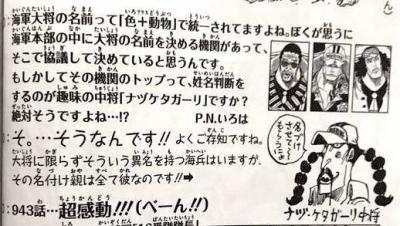 海軍大将の名前って「色＋動物」で統一されてますよね。ぼくが思うに
海軍本部の中に大将の名前を決める機関があって、
そこで協議して決めていると思うんです。
もしかしてその機関のトップって、姓名判断を
するのが趣味の中将「ナヅケタガーリ」ですか?
絶対そうですよね…!? P.N.いろは
そ。…そうなんです!! よくご存知ですね。
大将に限らずそういう異名を持つ海兵はいますが、
その名付け親は全て彼なのです!!➡
名づけさせて〜もらうよ
ナヅ・ケタガーリ中将
:943話…超感動!!!(べーん!!)